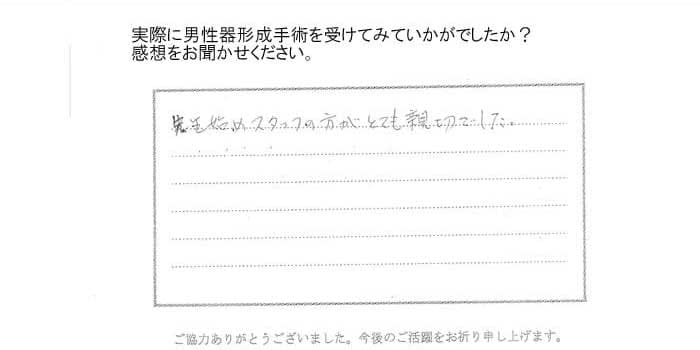 実際に男性器形成手術を受けてみていかがでしたか？
感想をお聞かせください。
先生始めスタッフの方がとても親切でした。
ご協力ありがとうございました。今後のご活躍をお祈り申し上げます。